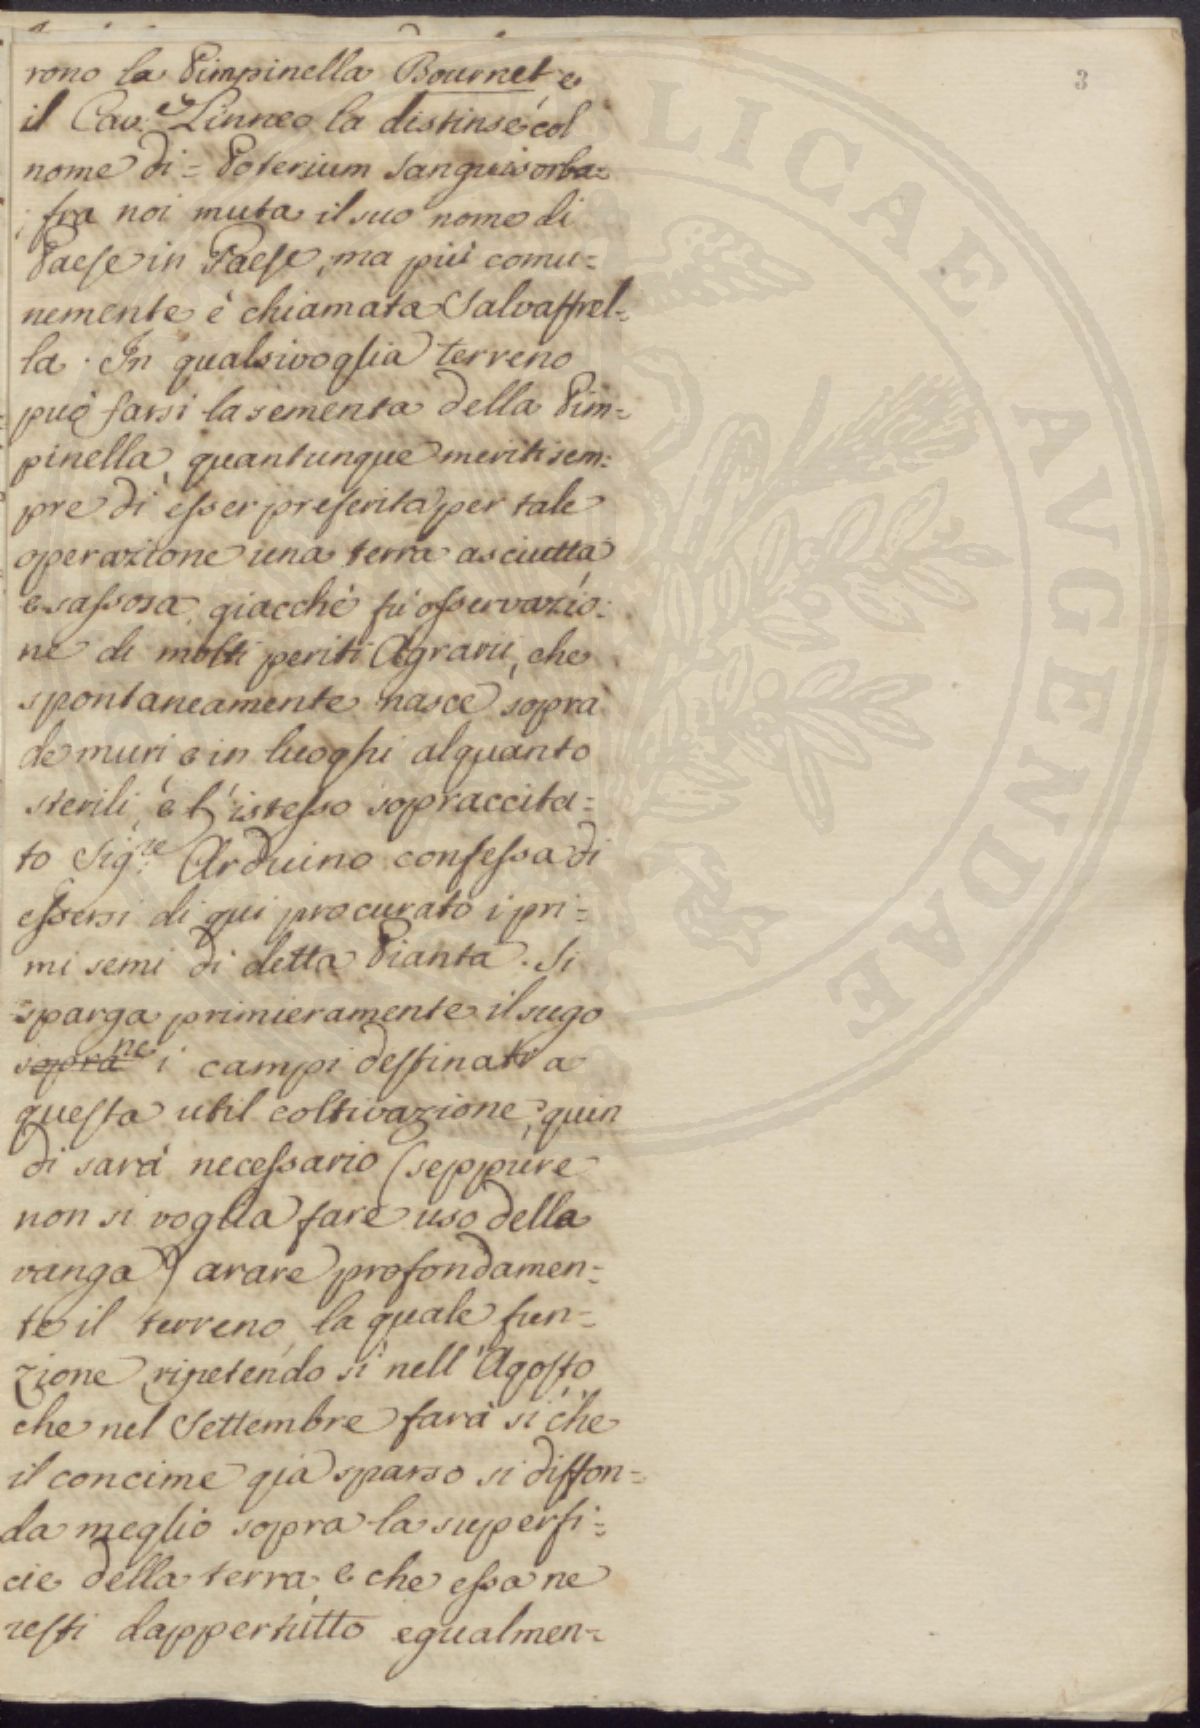 3
rono la Pimpinella Bournet, e
il Cav.e Linneo la distinse col
nome di = Poterium Sanguisorba =
fra noi muta il suo nome di
Paese in Paese, ma più comu=
nemente è chiamata Salvastrel=
la. In qualsivoglia terreno
può farsi la sementa della Pim=
pinella, quantunque meriti sem=
pre di esser preferita per tale
operazione una terra asciutta
e sassosa, giacchè fù osservazio=
ne di molti periti Agrarii, che
spontaneamente nasce sopra
de muri e in luoghi alquanto
sterili, e l'istesso sopraccita=
to Sig.re Arduino confessa di
essersi di qui procurato i pri=
mi semi di detta Pianta. Si
sparga primieramente il sugo
sopra ne i campi destinati a
questa util coltivazione, quin
di sarà necessario (seppure
non si voglia fare uso della
vanga) arare profondamen=
te il terreno, la quale fun=
zione ripetendosi nell'Agosto
che nel Settembre farà sì che
il concime già sparso si diffon=
da meglio sopra la superfi=
cie della terra, e che essa ne
resti dappertutto egualmen=
PUBLICAE AVGENDAE